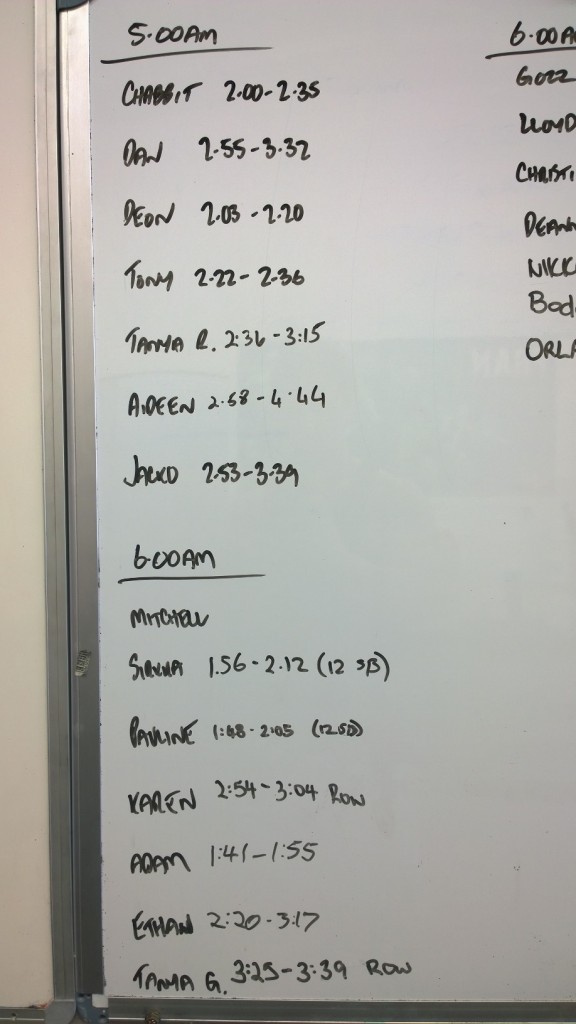 5.00AM
CHABBIT 2.00-2.35
DAN 2.55-3.32
DEON 2.03-2.20
TONY 2.22-2.36
TANYA R. 2:36-3:15
AIDEEN 2.58-4.44
JACKO 2.53-3.39
6.00AM
MITCHELL
1.56-2.12 (12 SB)
PAULINE 1:48-2:05
KAREN 2:54-3:04 ROW
ADAM 1:41-1:55
ETHAN 2:20-3:17
TANYA G. 3:25-3:39 ROW
6.00A
GOZZ
LLOYD
CHRISTI
DEANN
NIKK
Bod
ORLA